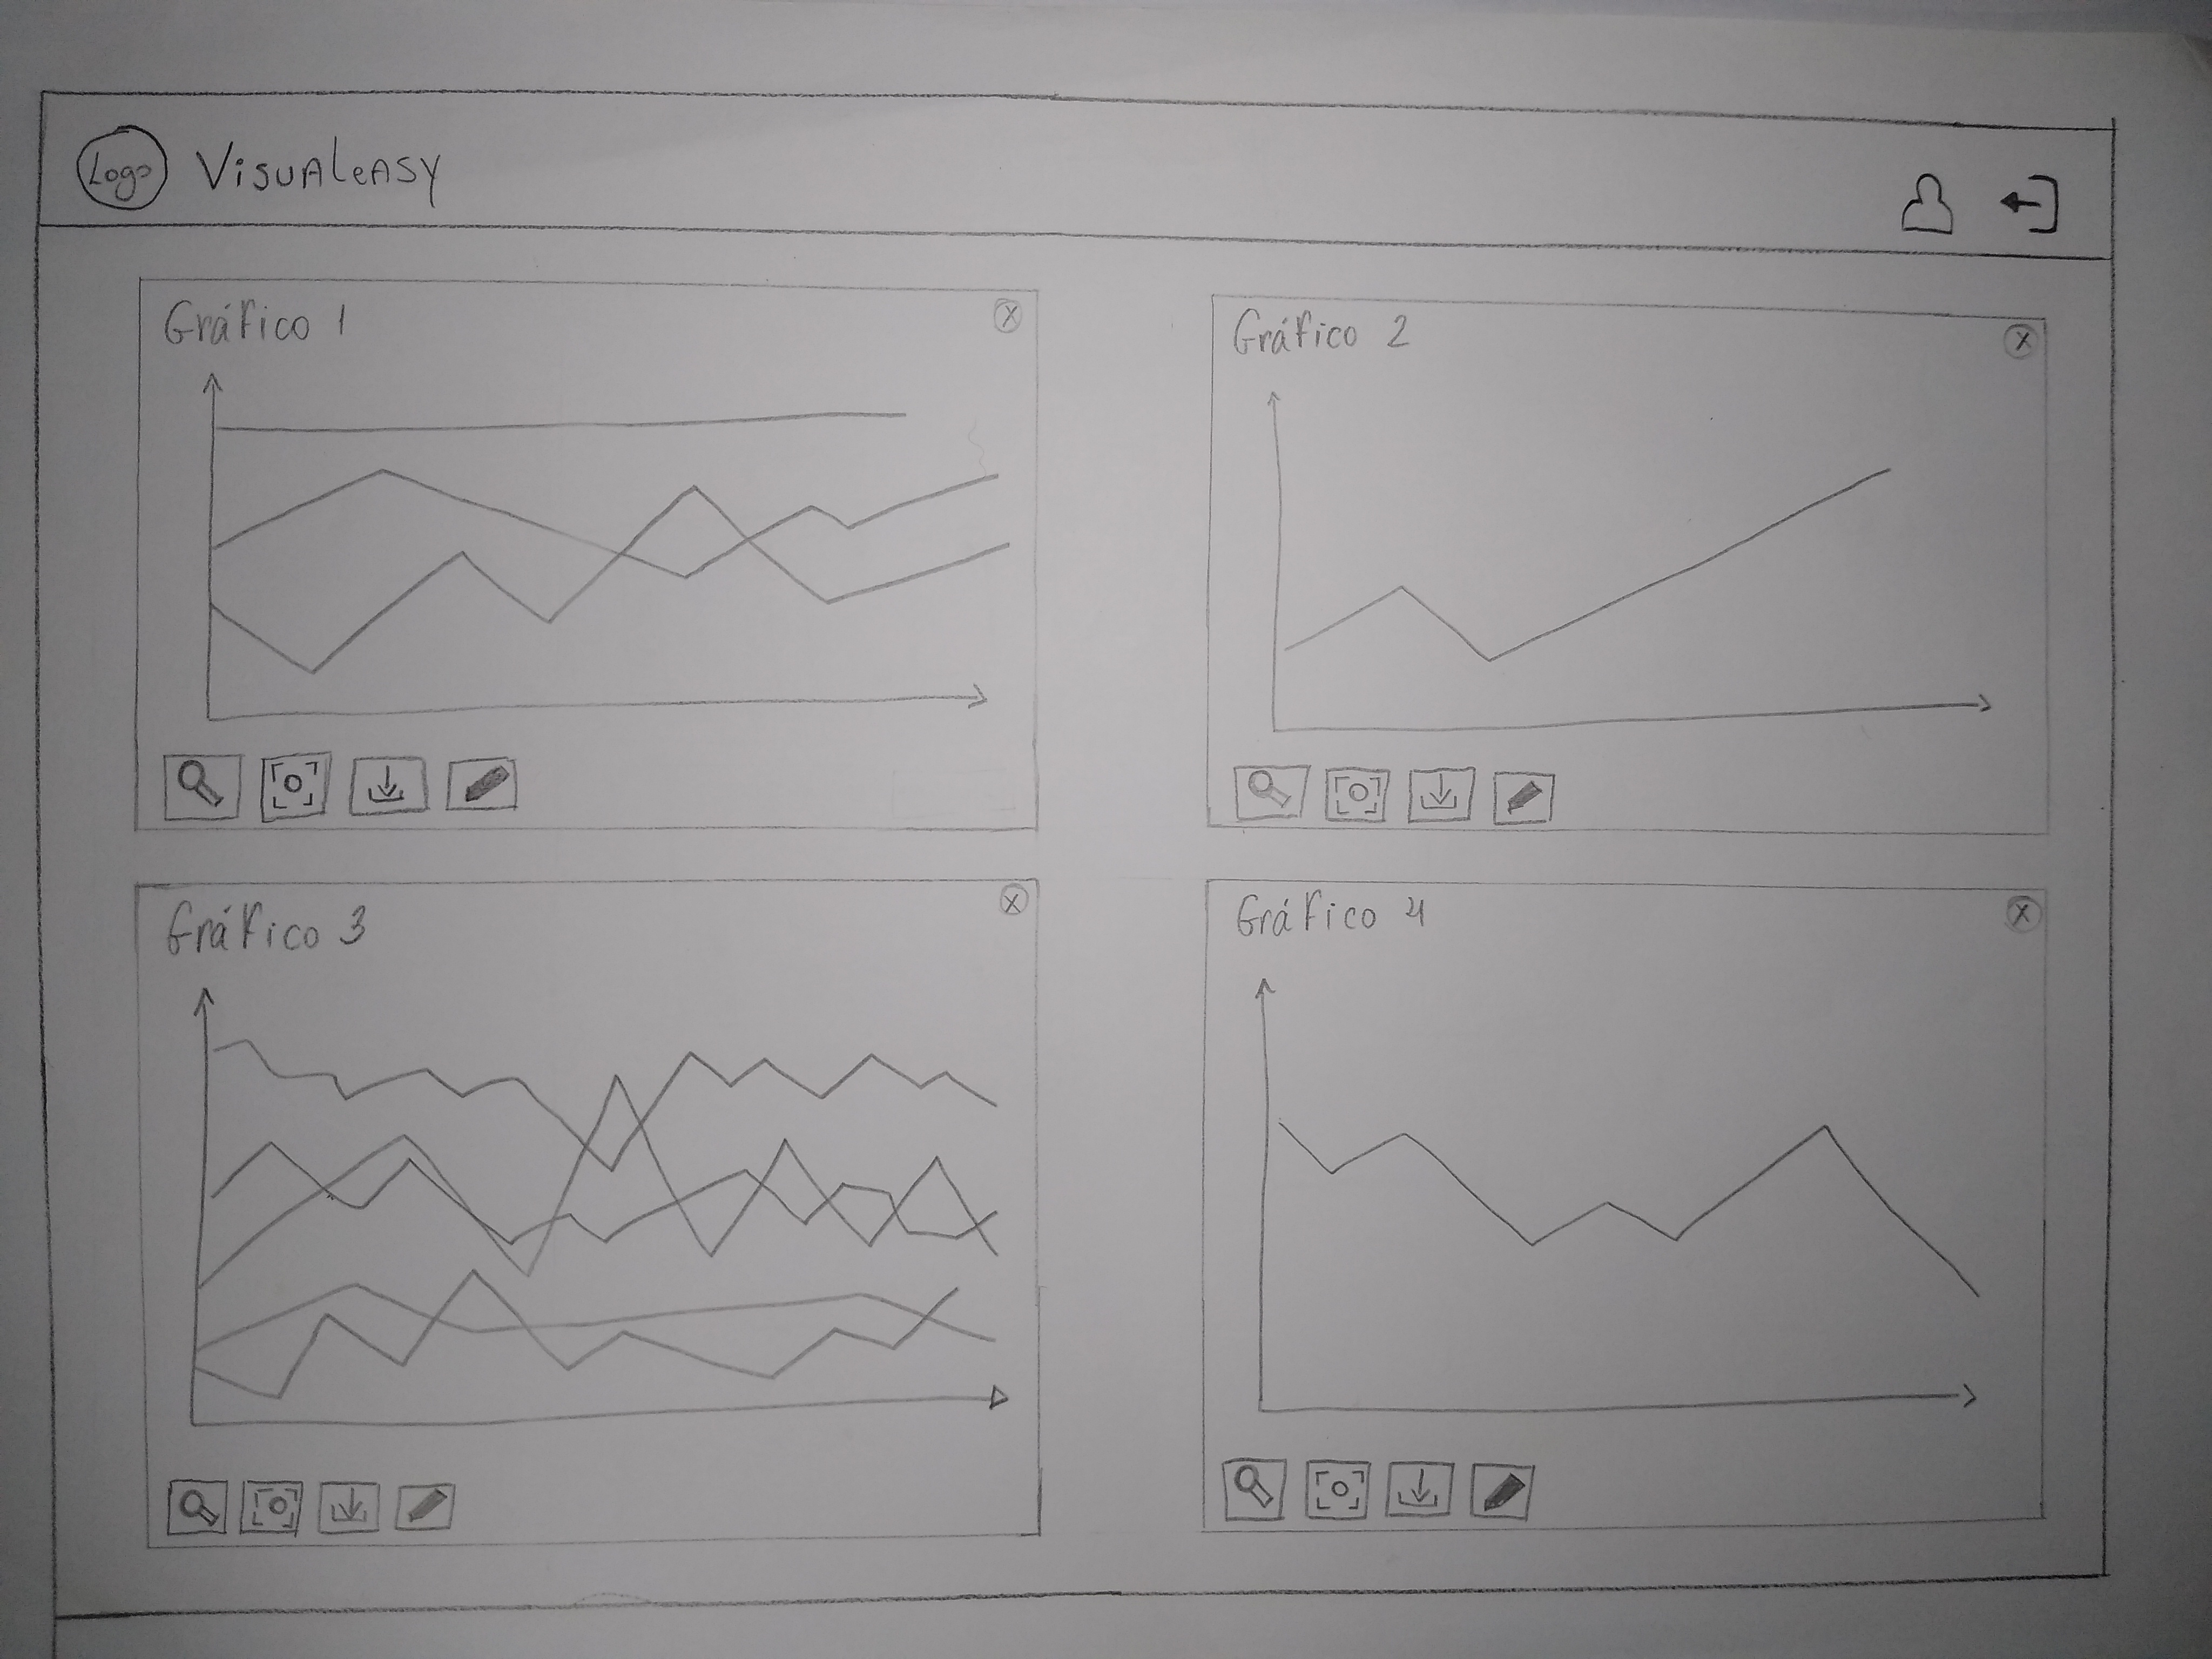 Logo VisuALeASy
Gráfico 1
X
Gráfico 2
X
Gráfico 3
X
Gráfico 4
X